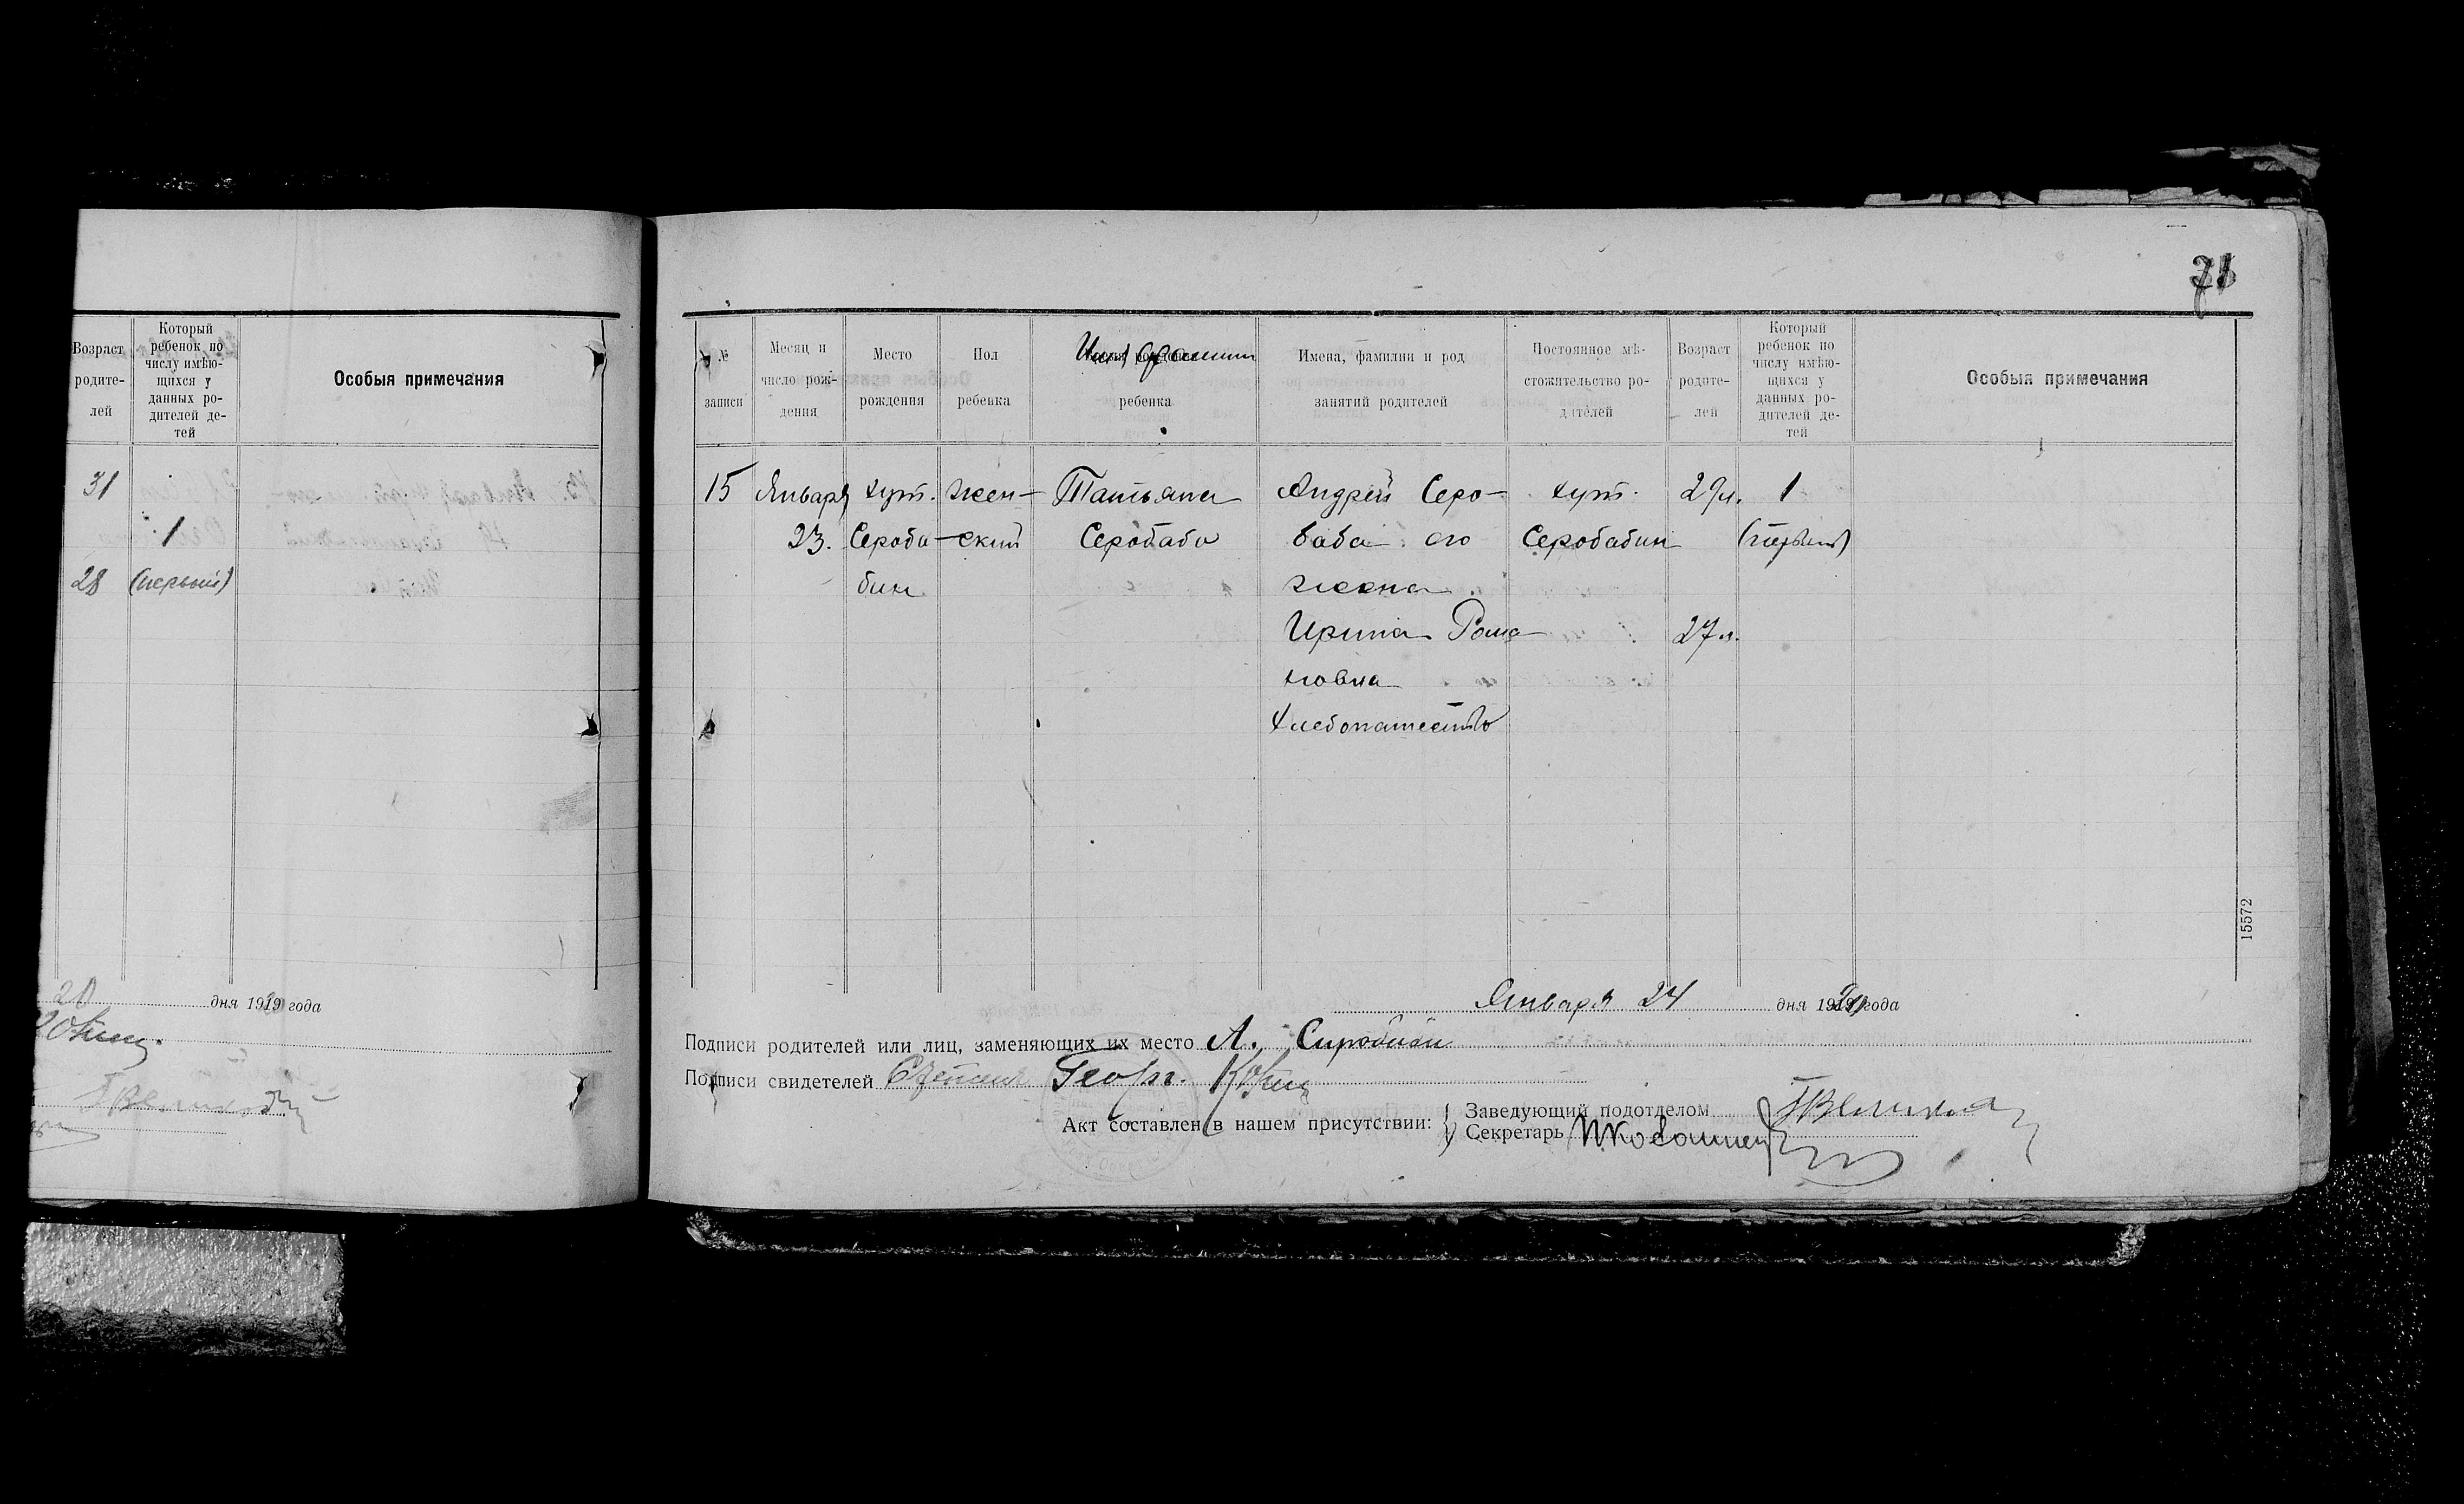 Возраст
родите-
лей
Который
ребенок по
числу имѣю-
щихся у
данных ро-
дителей де-
тей
Особыя примечания
31
1
28 (первый)
20 дня 1919 года
71
№
записи
Месяц и
число рож-
дения
Место
рождения
Пол
ребенка
Имя фамилия
ребенка
Имена, фамилии и род
занятий родителей
Постоянное мѣ-
стожительство ро-
дителей
Возраст
родите-
лей
Который
ребенок по
числу имѣю-
щихся у
данных ро-
дителей де-
тей
Особыя примечания
15 Января хут. жен- Татьяна Андрей Серо- хут. 29л. 1
23. Сероба- ский Серобаба баба его Серобабин (первый)
бин жена
Ирина Рома 27л.
новна
Хлебопашество
15572
Января 24 дня 1920 года
Подписи родителей или лиц, заменяющих их место А. Сиробаба
Подписи свидетелей Георг.
Акт составлен в нашем присутствии:
Заведующий подотделом
Секретарь